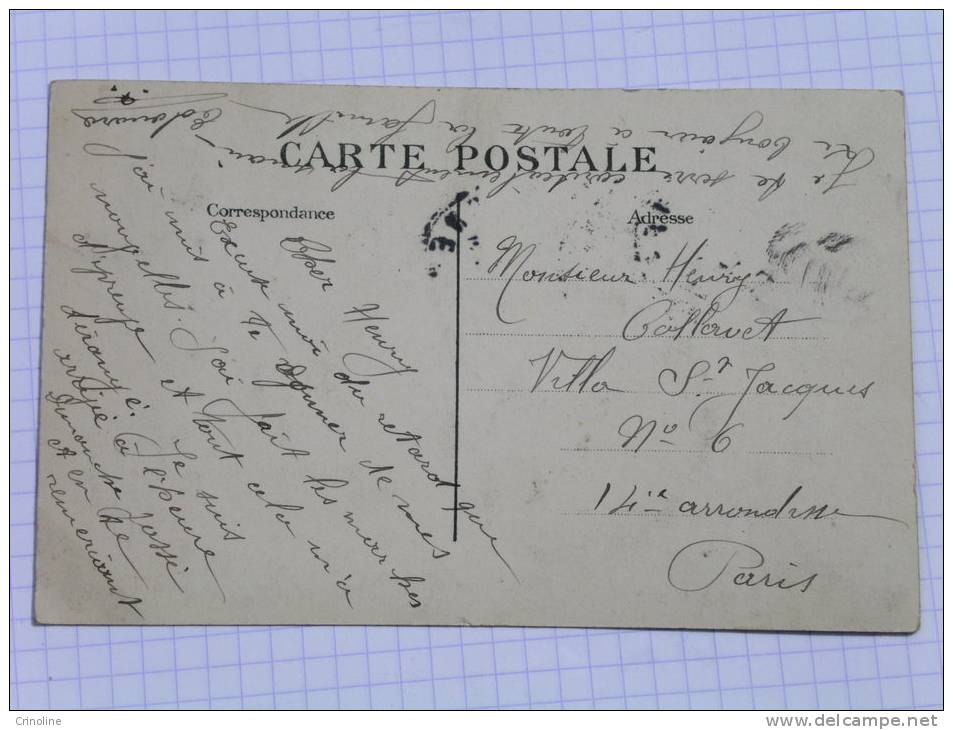 CARTE POSTALE
Correspondance
Adresse
Cher Henry
Excuse moi du retard que
j'ai mis à te donner de mes
nouvelles. J'ai fait les marches
d'épreuve et tout cela m'a
dérangé. Je suis
arrivé à l'heure
Dimanche passé
et en te
remerciant
Je te serre cordialement la main
Un bonjour a toute la famille
Edouard
Monsieur Henry
Villa St Jacques
No 6
14e arrondisse
Paris
Crinoline
www.delcampe.net